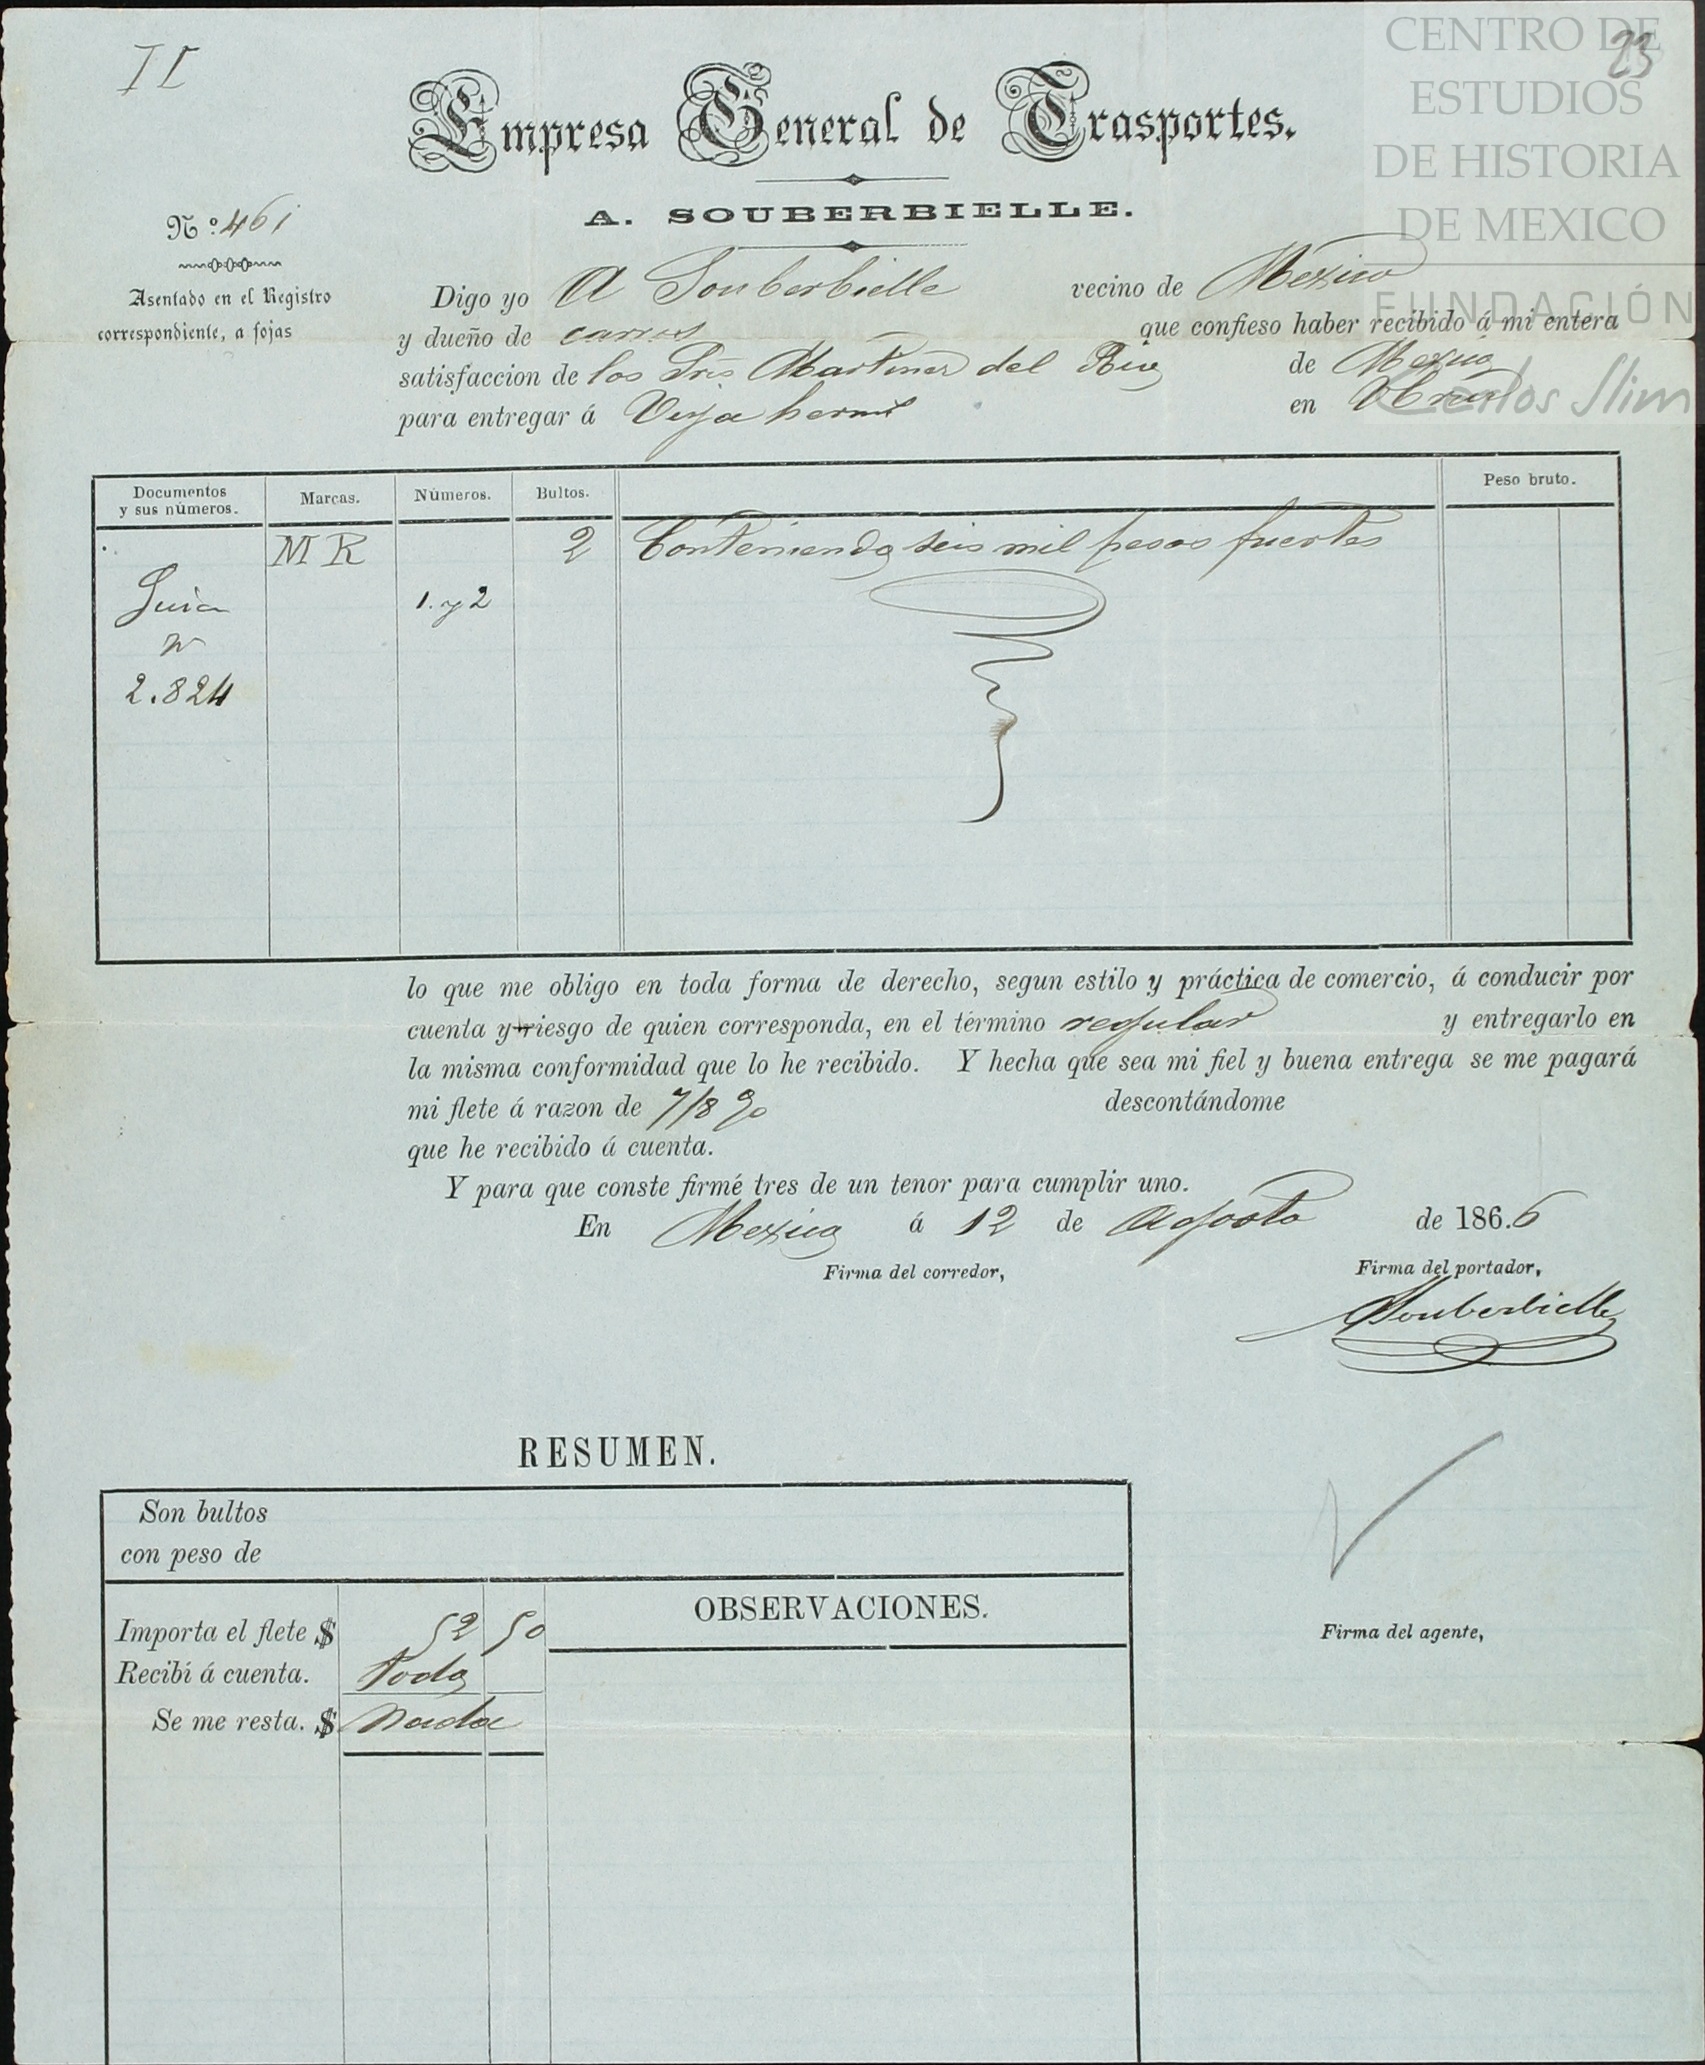 CENTRO DE
ESTUDIOS
DE HISTORIA
DE MEXICO
FUNDACIÓN
Carlos Slim
23
Empresa General de Trasportes.
A. SOUBERBIELLE.
Nº. 461
Asentado en el Registro
correspondiente, a fojas
Digo yo A Souberbielle vecino de Mexico
y dueño de carros que confieso haber recibido á mi entera
satisfaccion de los Sres Martinez del Rio de Mexico
para entregar á Veya herms en VCruz
Documentos
y sus números. Marcas. Números. Bultos. Peso bruto.
M R 2 Conteniendo seis mil pesos fuertes
Guia 1. y 2
n
2.824
lo que me obligo en toda forma de derecho, segun estilo y práctica de comercio, á conducir por
cuenta y riesgo de quien corresponda, en el término regular y entregarlo en
la misma conformidad que lo he recibido. Y hecha que sea mi fiel y buena entrega se me pagará
mi flete á razon de 7/8 % descontándome
que he recibido á cuenta.
Y para que conste firmé tres de un tenor para cumplir uno.
En Mexico á 12 de Agosto de 186.6
Firma del corredor, Firma del portador,
ASouberbielle
RESUMEN.
Son bultos
con peso de
OBSERVACIONES.
Importa el flete $ 52 50
Recibí á cuenta. Todo
Se me resta. $ Nada
Firma del agente,